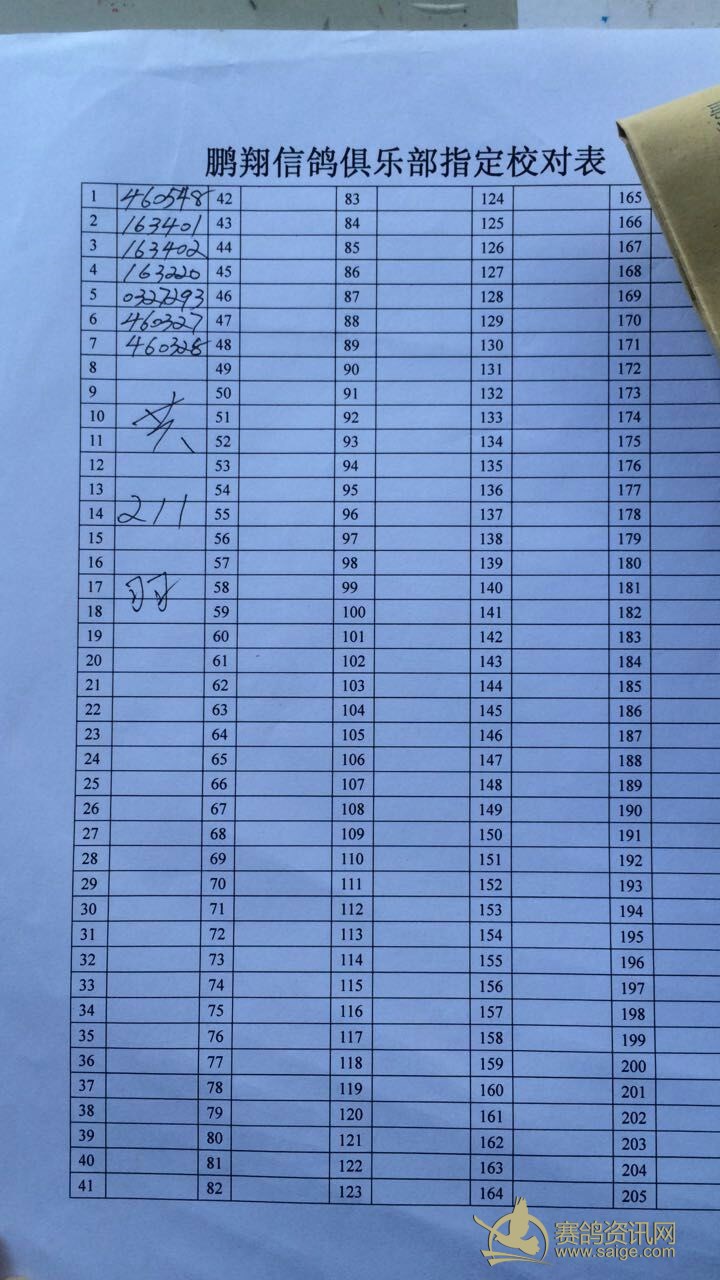 鹏翔信鸽俱乐部指定校对表
1 460548 42 83 124 165
2 163401 43 84 125 166
3 163402 44 85 126 167
4 163220 45 86 127 168
5 0327293 46 87 128 169
6 460327 47 88 129 170
7 460328 48 89 130 171
8 49 90 131 172
9 50 91 132 173
10 共 51 92 133 174
11 52 93 134 175
12 53 94 135 176
13 54 95 136 177
14 211 55 96 137 178
15 56 97 138 179
16 57 98 139 180
17 羽 58 99 140 181
18 59 100 141 182
19 60 101 142 183
20 61 102 143 184
21 62 103 144 185
22 63 104 145 186
23 64 105 146 187
24 65 106 147 188
25 66 107 148 189
26 67 108 149 190
27 68 109 150 191
28 69 110 151 192
29 70 111 152 193
30 71 112 153 194
31 72 113 154 195
32 73 114 155 196
33 74 115 156 197
34 75 116 157 198
35 76 117 158 199
36 77 118 159 200
37 78 119 160 201
38 79 120 161 202
39 80 121 162 203
40 81 122 163 204
41 82 123 164 205
赛鸽资讯网
www.saige.com